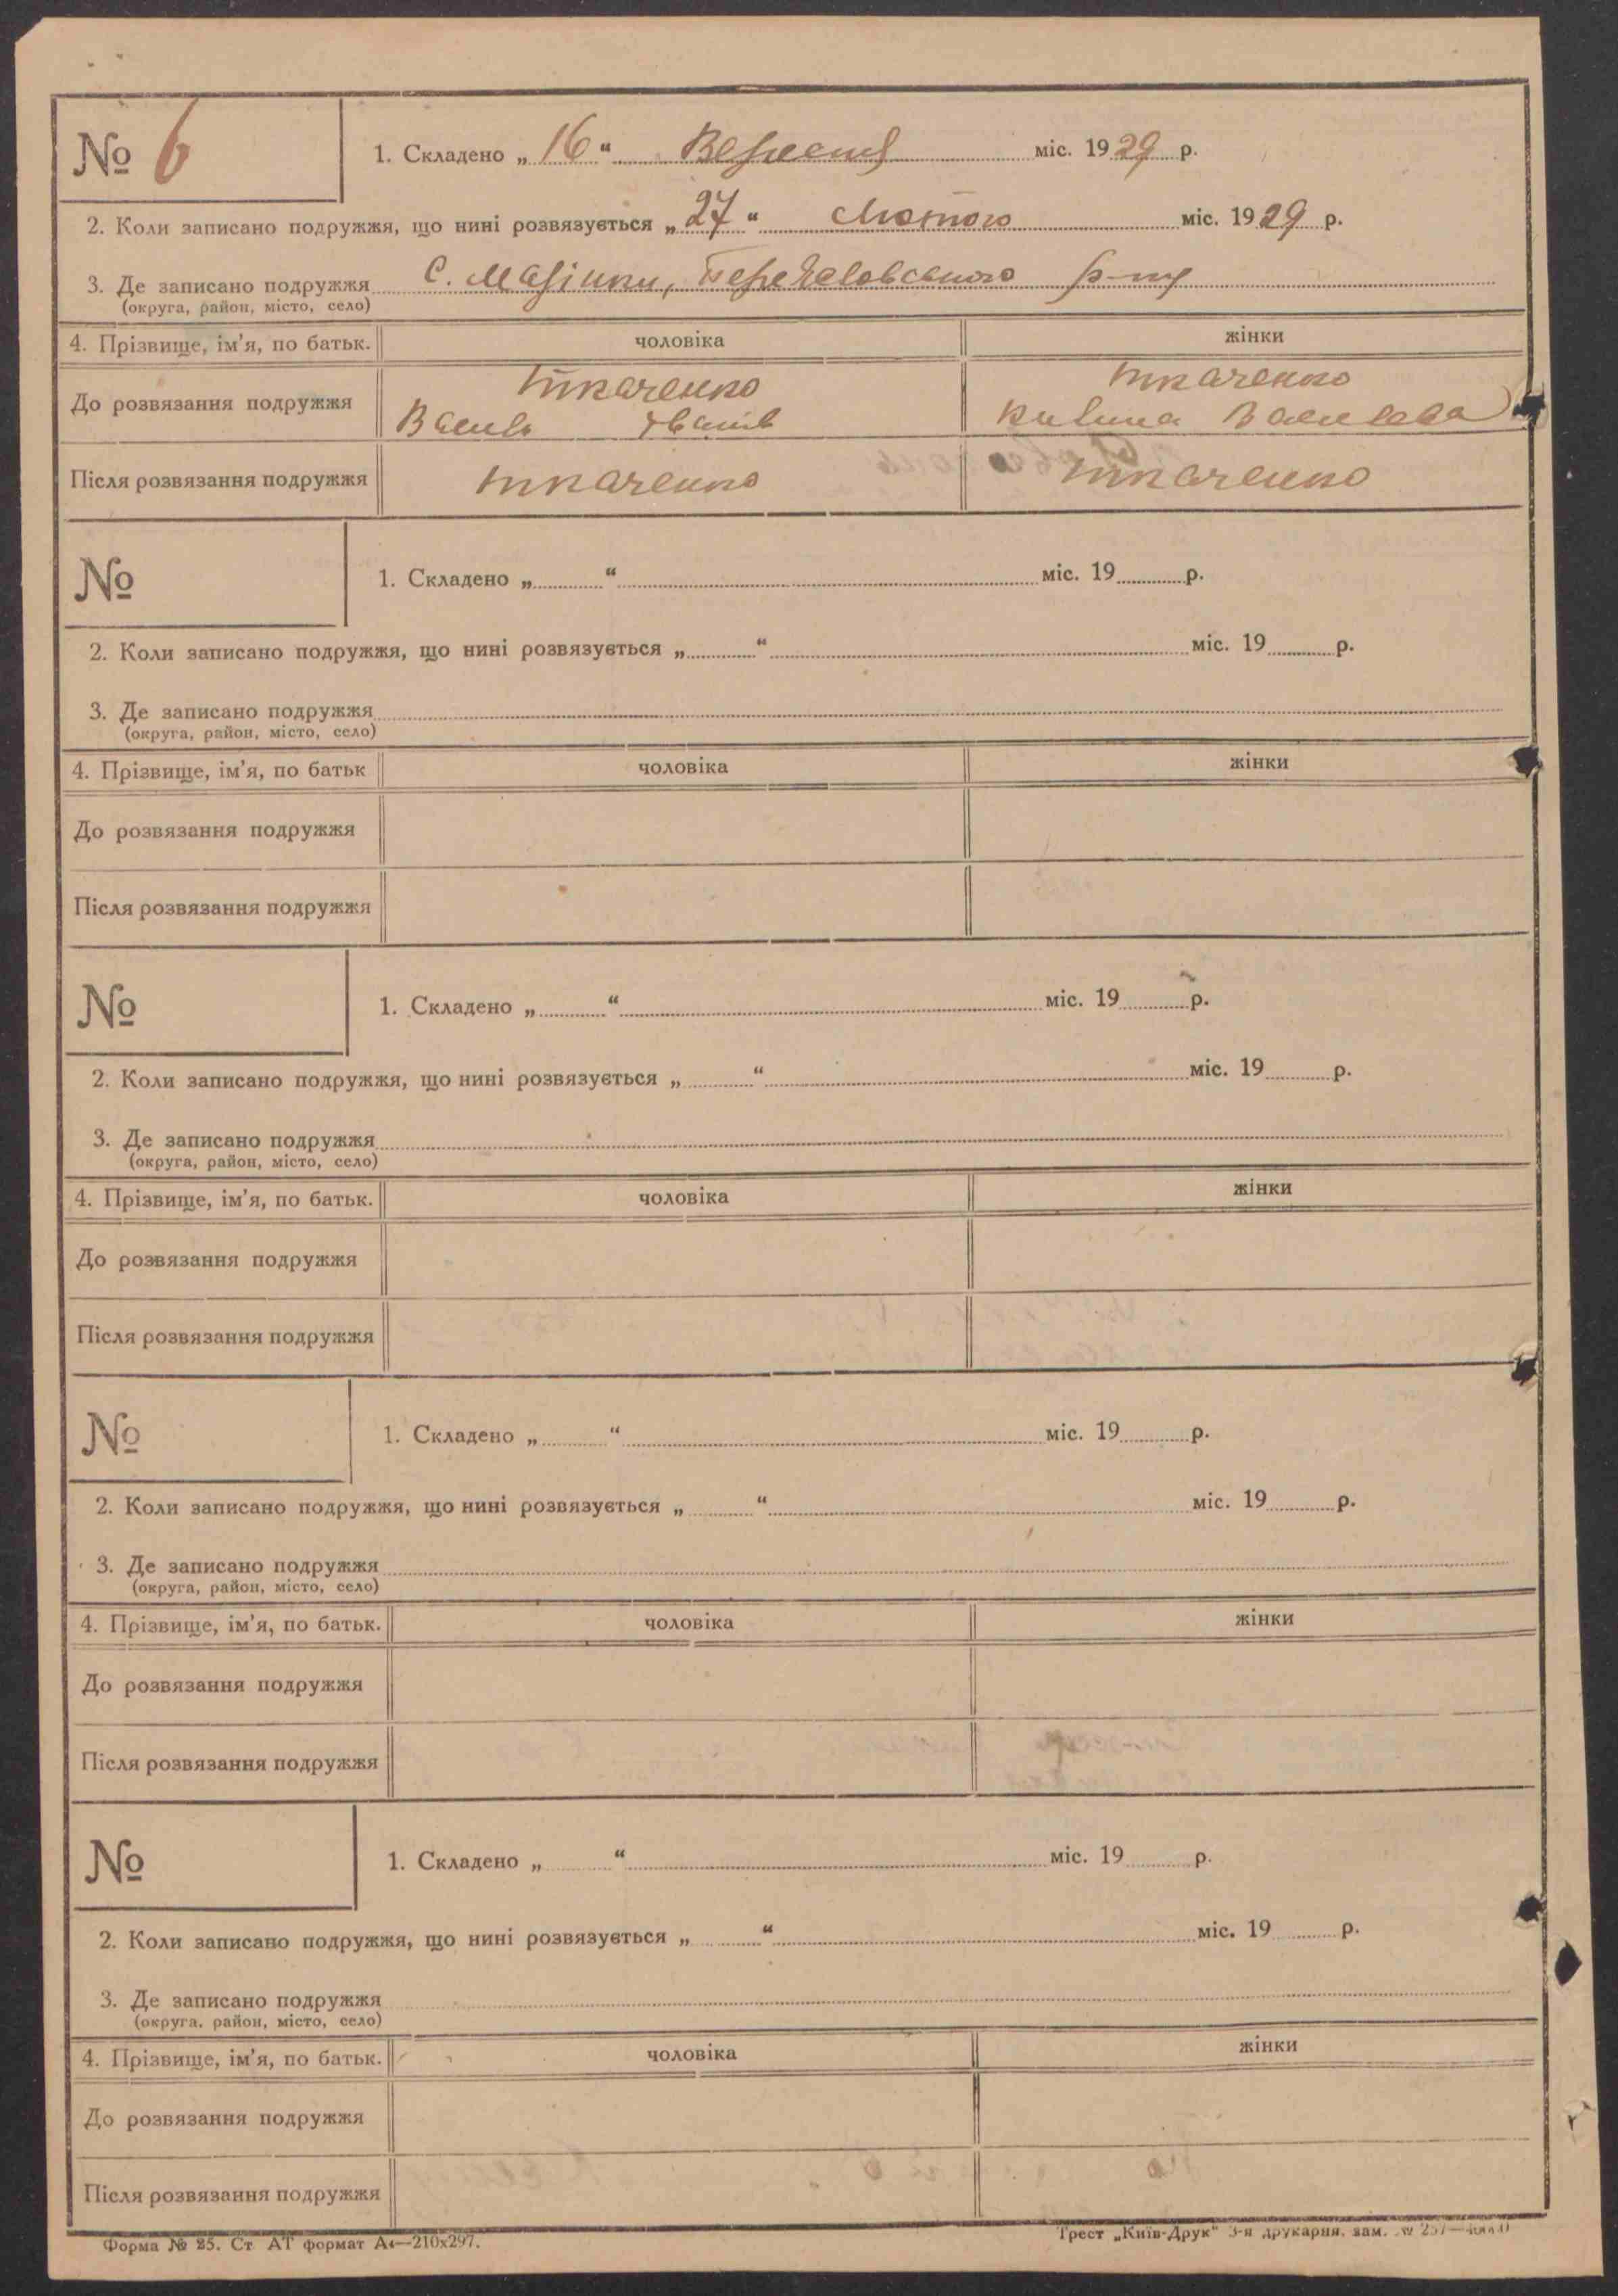 № 6
1. Складено „ 16 “ Вересня міс. 19 29 р.
2. Коли записано подружжя, що нині розвязується „ 27 “ Лютого міс. 19 29 р.
3. Де записано подружжя С. р-ну
(округа, район, місто, село)
4. Прізвище, ім’я, по батьк. чоловіка жінки
До розвязання подружжя Ткаченко Ткаченко
Василь Іванів Килина Василева
Після розвязання подружжя Ткаченко Ткаченко
№
1. Складено „ “ міс. 19 р.
2. Коли записано подружжя, що нині розвязується „ “ міс. 19 р.
3. Де записано подружжя
(округа, район, місто, село)
4. Прізвище, ім’я, по батьк чоловіка жінки
До розвязання подружжя
Після розвязання подружжя
№
1. Складено „ “ міс. 19 р.
2. Коли записано подружжя, що нині розвязується „ “ міс. 19 р.
3. Де записано подружжя
(округа, район, місто, село)
4. Прізвище, ім’я, по батьк. чоловіка жінки
До розвязання подружжя
Після розвязання подружжя
№
1. Складено „ “ міс. 19 р.
2. Коли записано подружжя, що нині розвязується „ “ міс. 19 р.
3. Де записано подружжя
(округа, район, місто, село)
4. Прізвище, ім’я, по батьк. чоловіка жінки
До розвязання подружжя
Після розвязання подружжя
№
1. Складено „ “ міс. 19 р.
2. Коли записано подружжя, що нині розвязується „ “ міс. 19 р.
3. Де записано подружжя
(округа, район, місто, село)
4. Прізвище, ім’я, по батьк. чоловіка жінки
До розвязання подружжя
Після розвязання подружжя
Форма № 25. Ст АТ формат А4—210х297. Трест „Київ-Друк“ 3-я друкарня. зам. № 257